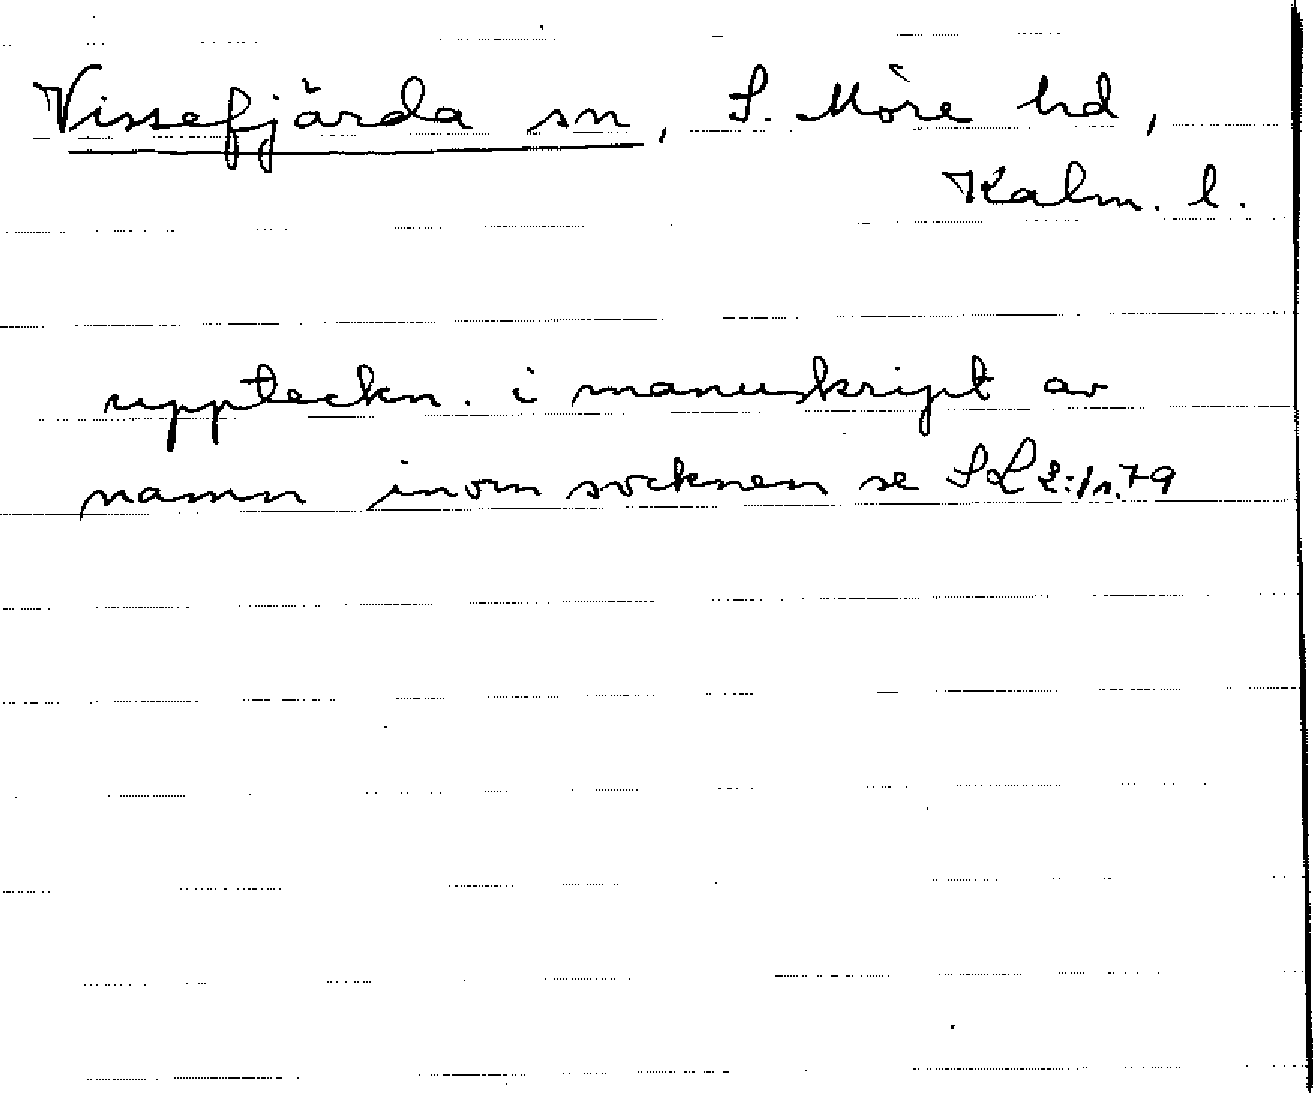 Vissefjärda sn, S. Möre hd,
Kalm. l.
uppteckn. i manuskript av
namn inom socknen se SL 2:1 s. 79